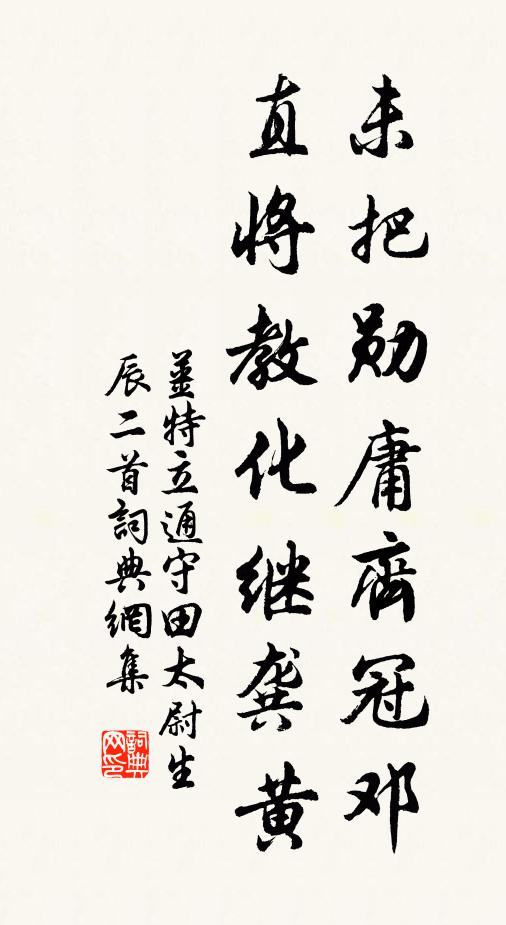 未把勋庸齊冠邓
直将教化继龚黄
姜特立通守田太尉生
辰二首詞典網集
詞典网印